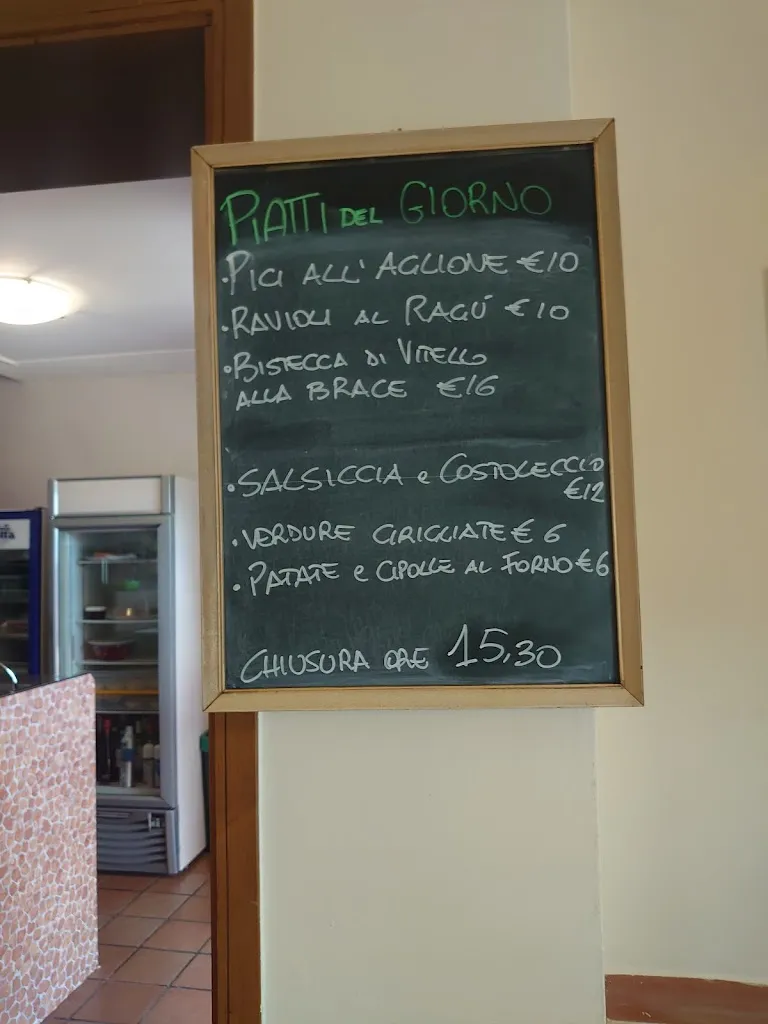 PIATTI DEL GIORNO
• PICI ALL' AGLIONE €10
• RAVIOLI AL RAGÚ €10
• BISTECCA DI VITELLO
ALLA BRACE €16
• SALSICCIA e COSTOLECCIO
€12
• VERDURE GRIGLIATE € 6
• PATATE e CIPOLLE AL FORNO €6
CHIUSURA ORE 15,30